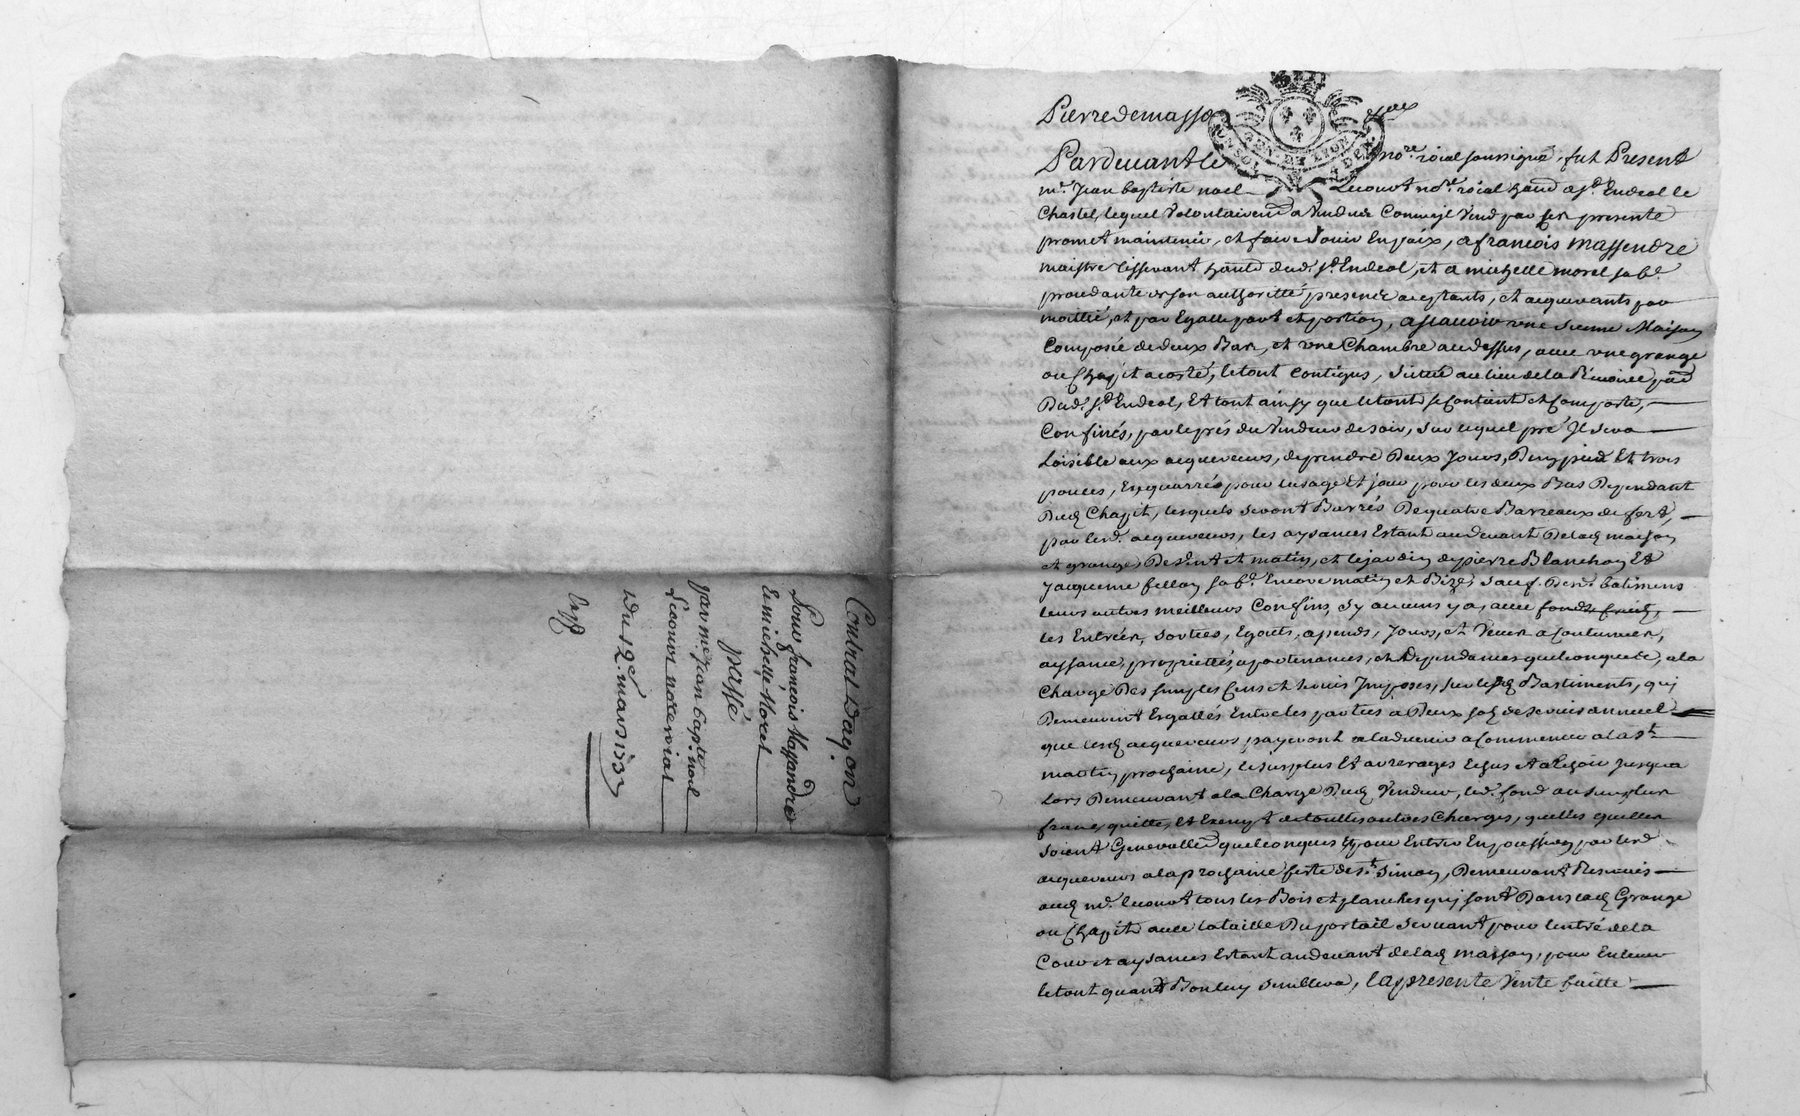 Contrat Daq.on
Pour françois Massandre
Et michelle Morel
passé
par me. jean baptte. noel
Lecourt notre roial
Du 12e. mars 173
Pierre de masso
GEN. DE LYON
Pardevant le nore. roial soussigné, fut Present
me. Jean baptiste noel Lecourt nore. roial hand a st. Endeol le
Chastel, lequel Volontairemt a Vendu Comme jl Vend par ses presente
promet maintenir, et faire Jouir En paix, a francois massendre
maistre tisserant hand dud. st. Endeol, et a michelle morel sa fe.
procedante de son authoritté presents aceptants, et acquerants par
moittié, et par Egalle part et portion, asscauoir une sienne Maison
Composée de deux Bas, et une Chambre au dessus, auec une grange
ou Chapit acosté, le tout Contigus, situé au lieu de la par
Dud. st. Endeol, Et tout ainsy que le tout se Contient et Comporte,
Confinés, par le prés du Vendeur de soir, sur lequel pré Jl sera
Loisible aux acquereurs, de prendre Deux Jours, D'un pied Et trois
pouces, En quarrés pour l'usage Et jour pour les deux Bas Dependant
Dud Chapit, lesquels seront Barrés De quatre Barreaux de fert,
par lesd. acquereurs, les aysances Estant au deuant De lad maison
et grange De vent et matin, et le jardin de pierre Blanchon Et
Jacqueme fellon sa fe. Encore matin et Bize, sauf Desd. batimens
leurs autres meilleurs Confins, sy aucuns y a, auec fonds fruits,
les Entrées, sorties, Egouts, apends, Jours, et Veues acoutumées,
aysance, proprietés, apartenances, et Dependances quelconques, a la
Charge Des simples Cens et seruis Jmposes, sur lesd Bastiments, qui
Demeurent Ergallés Entre les parties a Deux sols de seruis annuel
que lesd acquereurs payeront a laduenir a Commencer a la st.
martin prochaine, le surplus Et arrerages Echus Et a Echoir Jusqua
Lors Demeurant a la Charge Dud Vendeur, led. fond au surplus
franc, quitte, Et Exempt de touttes autres Charges, quelles quelles
soient Generallemt quelconques Et pour Entrer En possession par lesd
acquereurs a la prochaine feste de st. Simon, Demeurant Reservés
aud me. lecourt tous les Bois et planches qui sont Dans lad Grange
ou Chapit auec la taille Du portail seruant pour lentrée de la
Cour et aysances Estant au deuant de lad maison, pour Enleuer
le tout quand Bon luy semblera, la presente Vente faitte